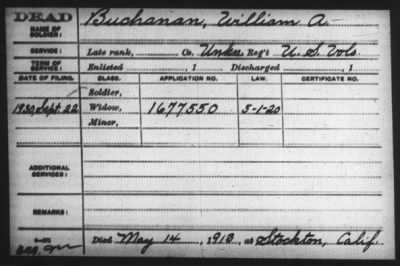 DEAD
NAME OF SOLDIER: Buchanan, William A.
SERVICE: Late rank, Co. Unkn Reg't U. S. Vols.
TERM OF SERVICE: Enlisted , 1 Discharged , 1
DATE OF FILING. CLASS. APPLICATION NO. LAW. CERTIFICATE NO.
Soldier,
1930, Sept. 22 Widow, 1677550 5-1-20
Minor,
ADDITIONAL SERVICES:
REMARKS:
Died May 14, 1913, at Stockton, Calif.